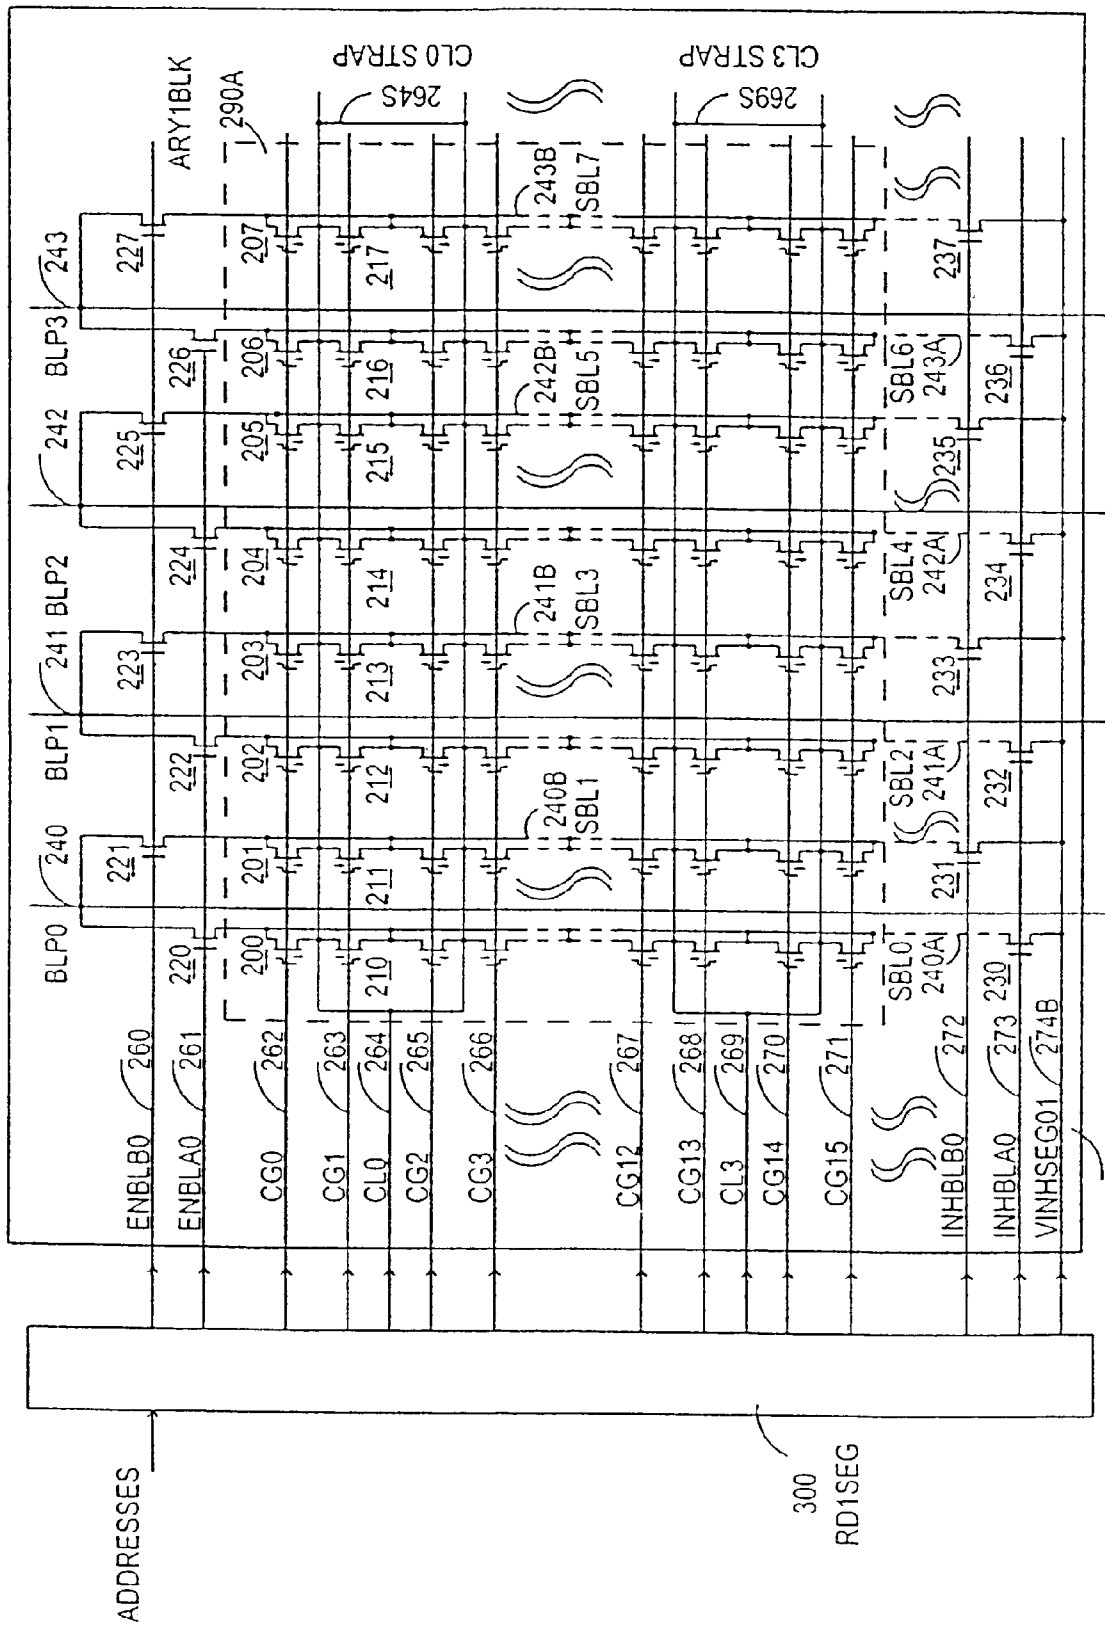 ADDRESSES
300
RD1SEG
ENBLB0 260
ENBLA0 261
CG0 262
CG1 263
CL0 264
CG2 265
CG3 266
CG12 267
CG13 268
CL3 269
CG14 270
CG15 271
INHBLB0 272
INHBLA0 273
VINHSEG01 274B
BLP0 240
BLP1 241
BLP2 242
BLP3 243
220 221 222 223 224 225 226 227
200 201 202 203 204 205 206 207
210 211 212 213 214 215 216 217
240B 241B 242B 243B
SBL1 SBL3 SBL5 SBL7
SBL0 SBL2 SBL4 SBL6
240A 241A 242A 243A
230 231 232 233 234 235 236 237
ARY1BLK
290A
CL0 STRAP
264S
CL3 STRAP
269S